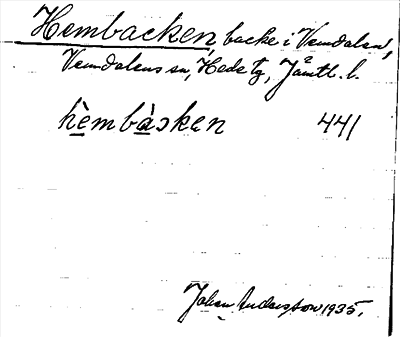 Hembacken, backe i Vemdalen,
Vemdalens sn, Hede tg, Jämtl. l.
hèmbàcken 441
Johan Andersson 1935.